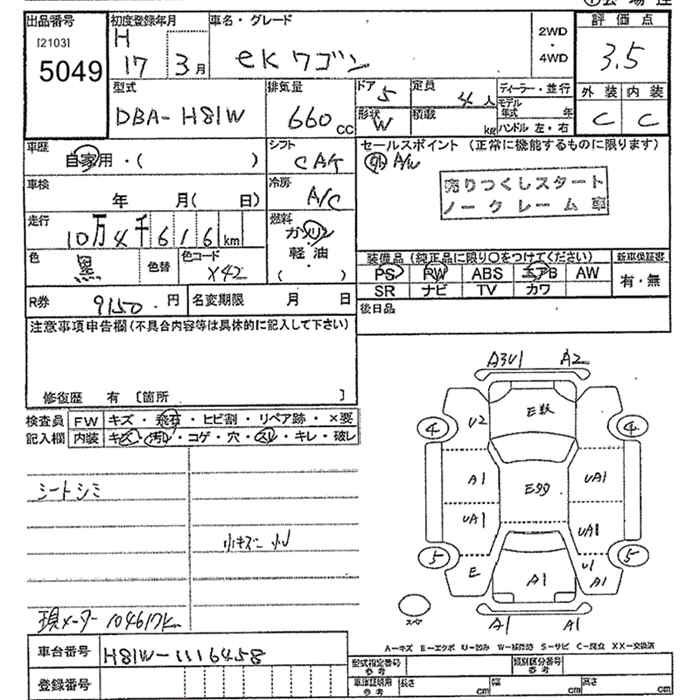 出品番号
[2103]
5049
初度登録年月
H
17 3月
車名・グレード
ekワゴン
2WD
・
4WD
評価点
3.5
外装 内装
C C
型式
DBA-H81W
排気量
660cc
ドア
5
形状
W
定員
4人
積載
kg
ディーラー・並行
モデル年式 年
ハンドル 左・右
車歴
自家用・( )
シフト
CAT
車検
年 月( 日)
冷房
A/C
走行
10万4千616km
燃料
ガソリン
軽油
( )
色
黒
色替
色コード
X42
R券
9150円
名変期限 月 日
セールスポイント(正常に機能するものに限ります)
外A/W
売りつくしスタート
ノークレーム車
装備品(純正品に限り〇をつけてください)
PS PW ABS エアB AW
SR ナビ TV カワ
新車保証書
有・無
後日品
注意事項申告欄(不具合内容等は具体的に記入して下さい)
修復歴 有 [箇所 ]
検査員 FW キズ・飛石・ヒビ割・リペア跡・×要
記入欄 内装 キズ・汚れ・コゲ・穴・スレ・キレ・破レ
シートシミ
小キズ 小U
現メーター104617k
A3U1 A2
4 U2 E数 4
A1 E多数 UA1
UA1 UA1
5 E A1 U1 A1 5
スペア
A1 A1
A-キズ E-エクボ U-凹み W-補修跡 S-サビ C-腐食 XX-交換済
車台番号
H81W-1116458
登録番号
型式指定番号 参考
類別区分番号 参考
車体証明用 参考
長さ cm 幅 cm 高さ cm